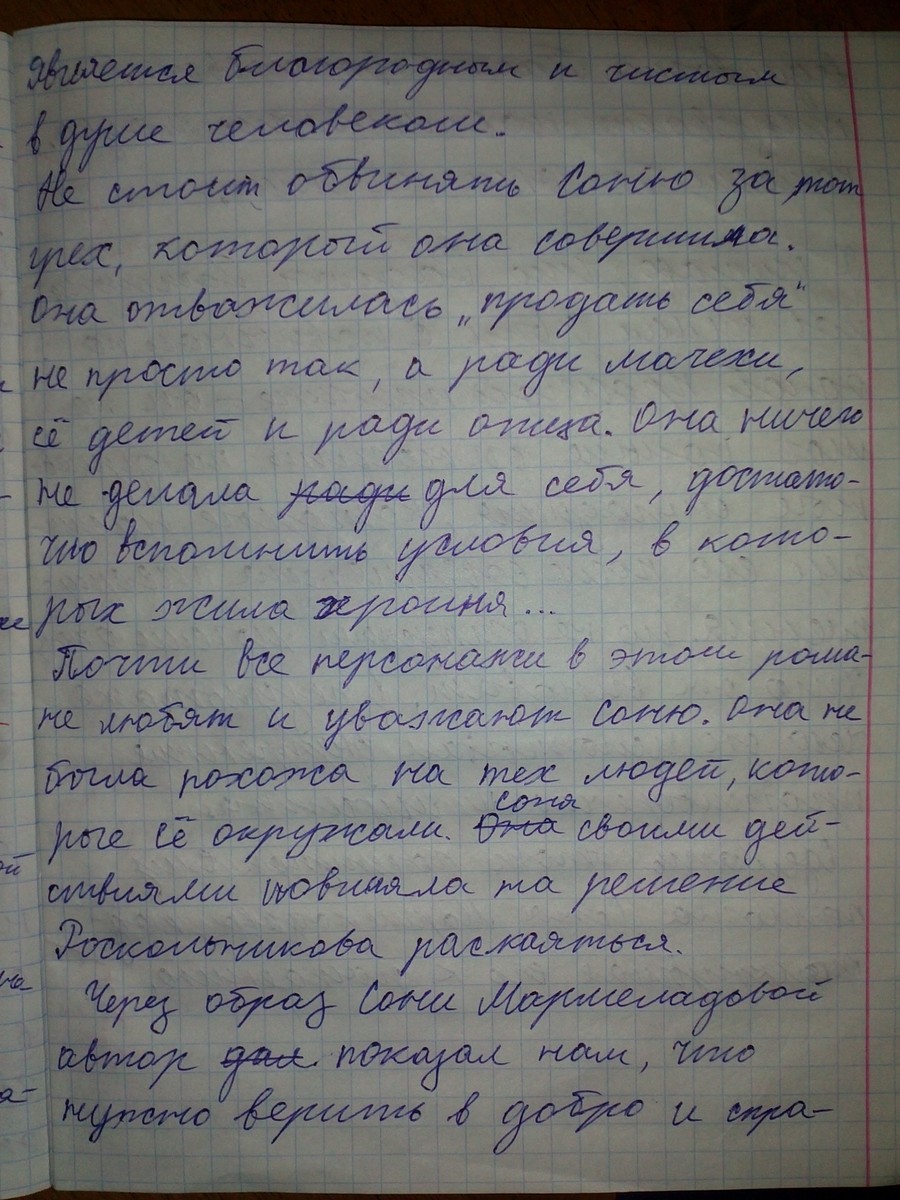 является благородным и чистым
в душе человеком.
Не стоит обвинять Соню за тот
грех, который она совершила.
Она отважилась „продать себя"
не просто так, а ради мачехи,
её детей и ради отца. Она ничего
не делала ради для себя, достато-
чно вспомнить условия, в кото-
рых жила героиня...
Почти все персонажи в этом рома-
не любят и уважают Соню. Она не
была похожа на тех людей, кото-
рые её окружали. Она Соня своими дей-
ствиями повлияла на решение
Роскольникова раскаяться.
Через образ Сони Мармеладовой
автор дал показал нам, что
нужно верить в добро и спра-